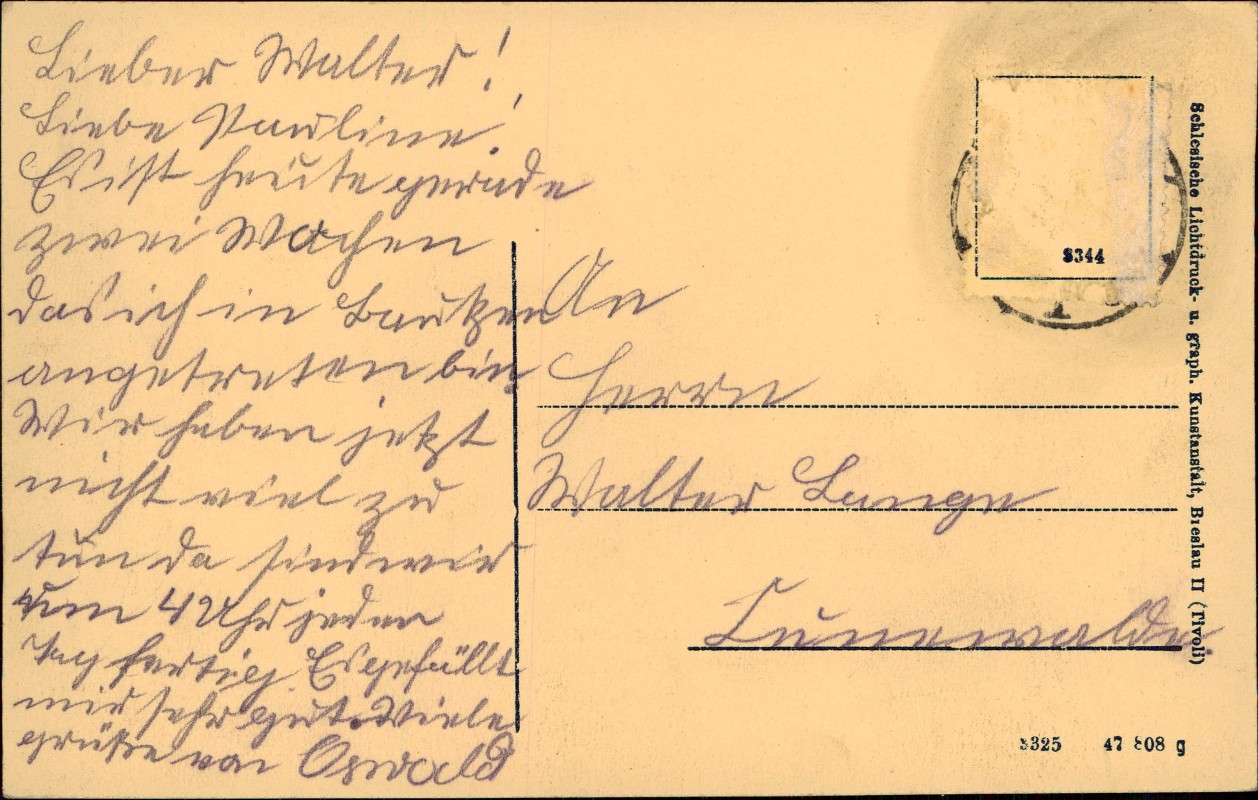 Lieber Walter!
Liebe Pauline!
Es ist heute gerade
zwei Wochen
das ich in Bautzen
angetreten bin.
Wir haben jetzt
nicht viel zu
tun da sind wir
um 4 Uhr jeden
Tag fertig. Es gefällt
mir sehr gut. Viele
grüße von Oswald
An
Herrn
Walter Lange
Cunewalde
S344
Schlesische Lichtdruck- u. graph. Kunstanstalt, Breslau II (Tivoli)
S325 47 808 g